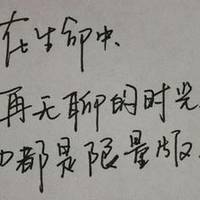 在生命中、
再无聊的时光
也都是限量版.